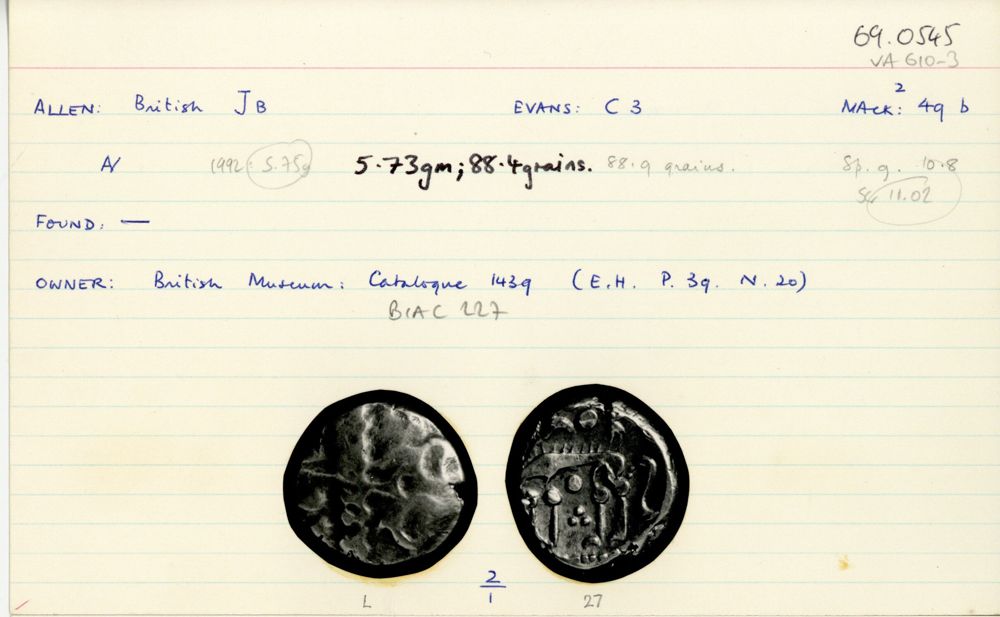 69.0545
VA 610-3
ALLEN: British JB EVANS: C 3 MACK²: 49 b
A/ 1992: 5.75g 5.73gm; 88.4 grains. 88.9 grains. Sp. g. 10.8
11.02
FOUND: —
OWNER: British Museum: Catalogue 1439 (E.H. P. 39. N. 20)
BIAC 227
2/1
L 27